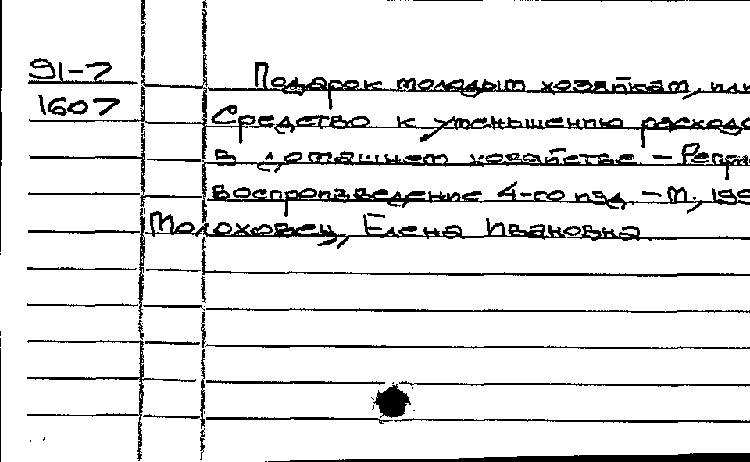 91-7 Подарок молодым хозяйкам, или
1607 Средство к уменьшению расходо
в домашнем хозяйстве – Репри
воспроизведение 4-го изд. – М., 199
Молоховец, Елена Ивановна